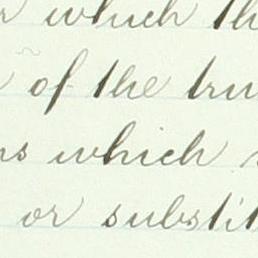 which th
of the tru
ns which
or substit